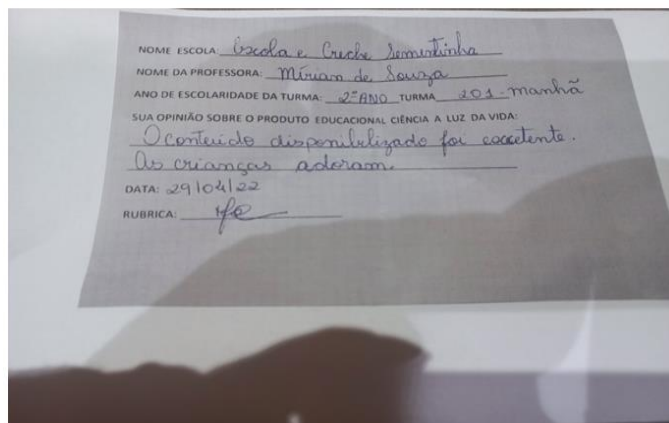 NOME ESCOLA: Escola e Creche Sementinha
NOME DA PROFESSORA: Mírian de Souza
ANO DE ESCOLARIDADE DA TURMA: 2º ANO TURMA 201-manhã
SUA OPINIÃO SOBRE O PRODUTO EDUCACIONAL CIÊNCIA A LUZ DA VIDA:
O conteúdo disponibilizado foi excelente.
As crianças adoram.
DATA: 29/04/22
RUBRICA: